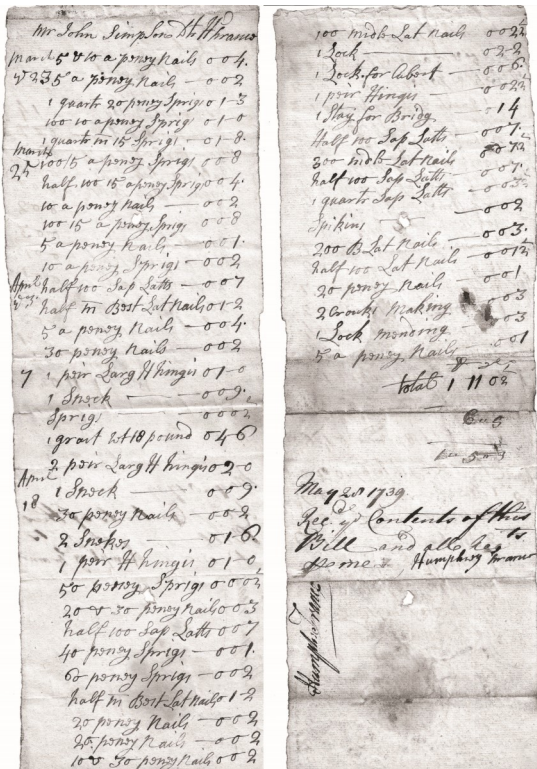 Mr John Simpson Dto H frame
March 5 & 10 a peney Nails — 0 0 4.
& 23 5 a peney Nails — 0 0 2
1 quartr 20 peney Sprigs 0 1 - 3
100 10 a peney Sprig 0 1 - 0
1 quartr m 15 Sprigs 0 1 - 8
March 25 100 15 a peney Sprigs 0 0 8
half 100 15 a peney Sprigs 0 0 4.
10 a peney Nails — 0 0 2
100 15 a peney Sprigs 0 0 8
5 a peney Nails — 0 0 1.
10 a peney Sprigs — 0 0 2
April half 100 Sap Latts — 0 0 7
half m Best Lat Nails 0 1 - 2
5 a peney Nails — 0 0 4.
30 peney Nails — 0 0 2
7 1 peir Larg H hingis 0 1 - 0
1 Sneck — 0 0 9.
Sprigs 0 0 0 2
1 grait wt 18 pound 0 4 6
2 peir Larg H hingis 0 2 - 0
April 18 1 Sneck — 0 0 9.
30 peney Nails — 0 0 2
2 Snekes — 0 1 - 6
1 peir H hingis 0 1 - 0
50 peney Sprigs 0 0 0 2
20 & 30 peney Nails 0 0 3
half 100 Sap Latts 0 0 7
40 peney Sprigs — 0 0 1.
60 peney Sprigs — 0 0 2
half m Best Lat Nails 0 1 - 2
20 peney Nails — 0 0 2
20 peney Nails — 0 0 2
10 & 30 peney Nails 0 0 2
100 midb Lat Nails 0 0 2½
1 Lock — 0 2 - 2
1 Lock for Cibert — 0 0 6.
1 peir Hingis — 0 0 2½
1 Stay for Bridg 0 1 4
Half 100 Sap Latts — 0 0 7.
300 midb Lat Nails 0 0 7½
half 100 Sap Latts — 0 0 7.
1 quartr Sap Latts — 0 0 3½
Spikins — 0 0 2
200 B Lat Nails — 0 0 3.
half 100 Lat Nails — 0 0 1½
20 peney Nails — 0 0 1
2 Crouks Making — 0 0 3
1 Lock mending — 0 0 3
5 a peney Nails — 0 0 1
total 1 11 0½
May 28 1739
Rec.d ye Contents of this
Bill and all
pr me Humphrey frame
Humph: frame